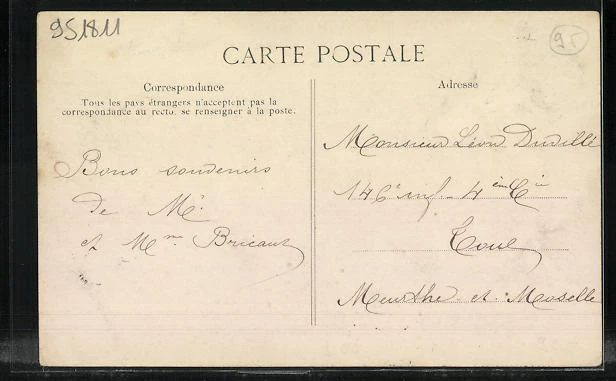 951811
95
CARTE POSTALE
Correspondance
Tous les pays étrangers n'acceptent pas la
correspondance au recto. se renseigner à la poste.
Bons souvenirs
de Mr.
et Mme. Bricault
Adresse
Monsieur Léon
146e inf. 4ème Cie
Toul
Meurthe et Moselle